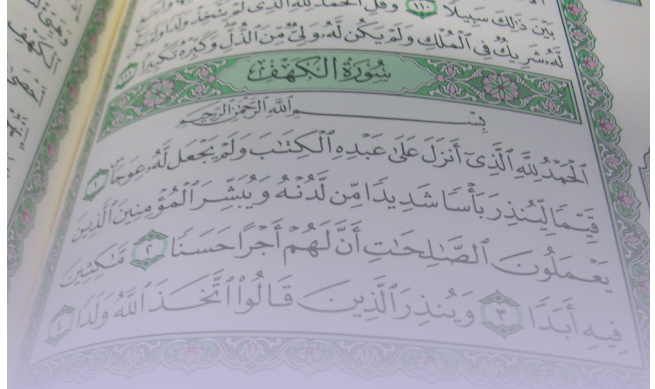 بَيْنَ ذَٰلِكَ سَبِيلًا ١١٠ وَقُلِ ٱلْحَمْدُ لِلَّهِ ٱلَّذِى لَمْ يَتَّخِذْ وَلَدًا وَلَمْ يَكُن
لَّهُۥ شَرِيكٌ فِى ٱلْمُلْكِ وَلَمْ يَكُن لَّهُۥ وَلِىٌّ مِّنَ ٱلذُّلِّ وَكَبِّرْهُ تَكْبِيرًا ١١١
سُورَةُ الكَهْفِ
بِسْمِ ٱللَّهِ ٱلرَّحْمَٰنِ ٱلرَّحِيمِ
ٱلْحَمْدُ لِلَّهِ ٱلَّذِىٓ أَنزَلَ عَلَىٰ عَبْدِهِ ٱلْكِتَٰبَ وَلَمْ يَجْعَل لَّهُۥ عِوَجَا ١
قَيِّمًا لِّيُنذِرَ بَأْسًا شَدِيدًا مِّن لَّدُنْهُ وَيُبَشِّرَ ٱلْمُؤْمِنِينَ ٱلَّذِينَ
يَعْمَلُونَ ٱلصَّٰلِحَٰتِ أَنَّ لَهُمْ أَجْرًا حَسَنًا ٢ مَّٰكِثِينَ
فِيهِ أَبَدًا ٣ وَيُنذِرَ ٱلَّذِينَ قَالُوا۟ ٱتَّخَذَ ٱللَّهُ وَلَدًا ٤